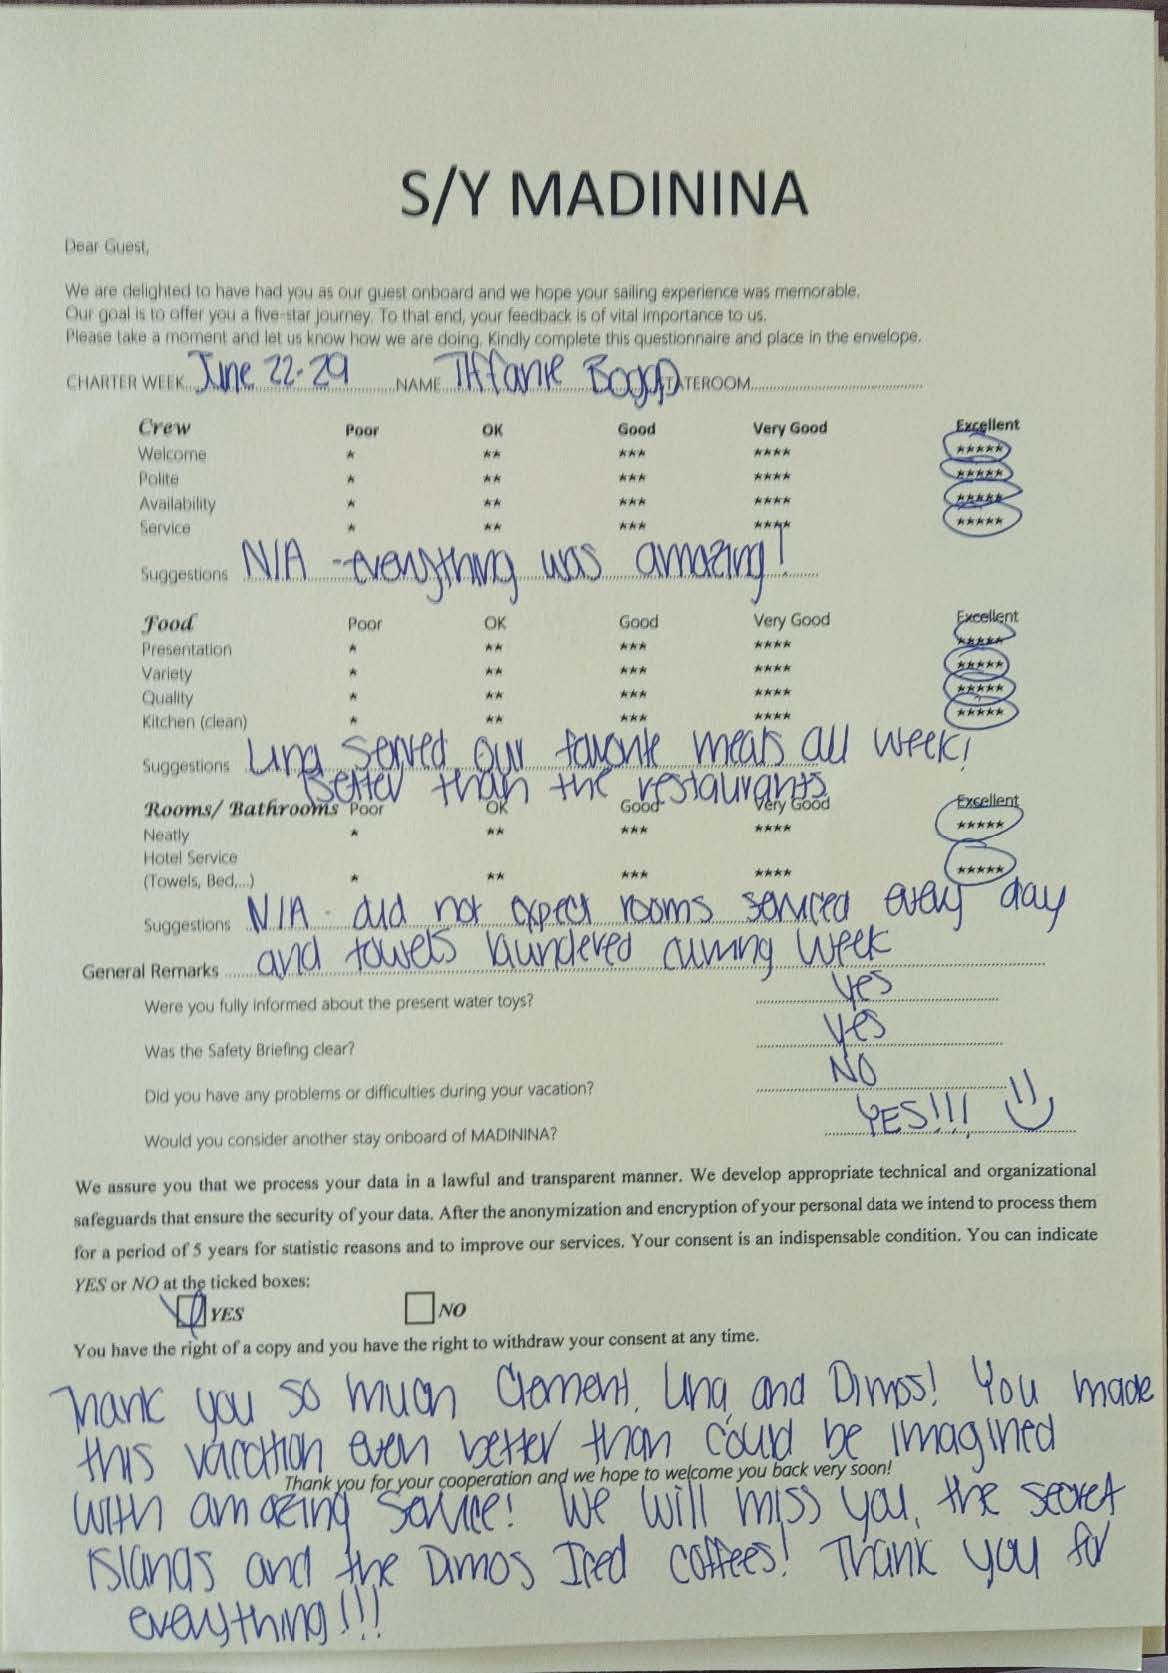 S/Y MADININA
Dear Guest,
We are delighted to have had you as our guest onboard and we hope your sailing experience was memorable.
Our goal is to offer you a five-star journey. To that end, your feedback is of vital importance to us.
Please take a moment and let us know how we are doing. Kindly complete this questionnaire and place in the envelope.
CHARTER WEEK June 22-29 NAME Tiffanie Boggs STATEROOM
Crew Poor OK Good Very Good Excellent
Welcome * ** *** **** *****
Polite * ** *** **** *****
Availability * ** *** **** *****
Service * ** *** **** *****
Suggestions N/A - everything was amazing!
Food Poor OK Good Very Good Excellent
Presentation * ** *** **** *****
Variety * ** *** **** *****
Quality * ** *** **** *****
Kitchen (clean) * ** *** **** *****
Suggestions Lina served our favorite meals all week!
Better than the restaurants
Rooms/ Bathrooms Poor OK Good Very Good Excellent
Neatly * ** *** **** *****
Hotel Service
(Towels, Bed,...) * ** *** **** *****
Suggestions N/A - did not expect rooms serviced every day
General Remarks and towels laundered during week
Were you fully informed about the present water toys? yes
Was the Safety Briefing clear? yes
Did you have any problems or difficulties during your vacation? NO
Would you consider another stay onboard of MADININA? YES!!!
We assure you that we process your data in a lawful and transparent manner. We develop appropriate technical and organizational
safeguards that ensure the security of your data. After the anonymization and encryption of your personal data we intend to process them
for a period of 5 years for statistic reasons and to improve our services. Your consent is an indispensable condition. You can indicate
YES or NO at the ticked boxes:
YES NO
You have the right of a copy and you have the right to withdraw your consent at any time.
Thank you so much Clement, Lina, and Dimos! You made
this vacation even better than could be imagined
Thank you for your cooperation and we hope to welcome you back very soon!
with amazing service! We will miss you, the secret
islands and the Dimos Iced coffees! Thank you for
everything!!!